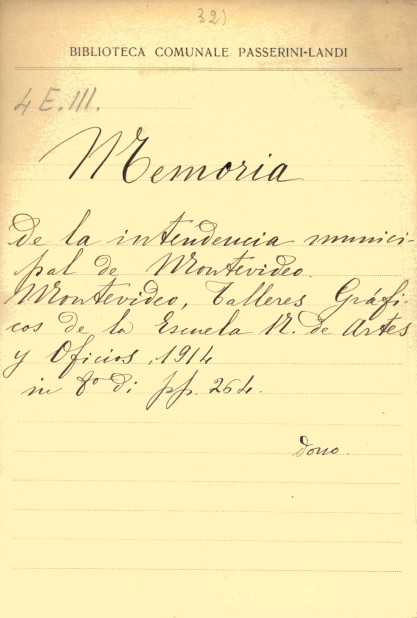 32)
BIBLIOTECA COMUNALE PASSERINI-LANDI
4 E. III.
Memoria
De la intendencia munici-
pal de Montevideo.
Montevideo, Talleres Gráfi-
cos de la Escuela N. de Artes
y Oficios, 1914
in 8° di pp. 264.
dono.